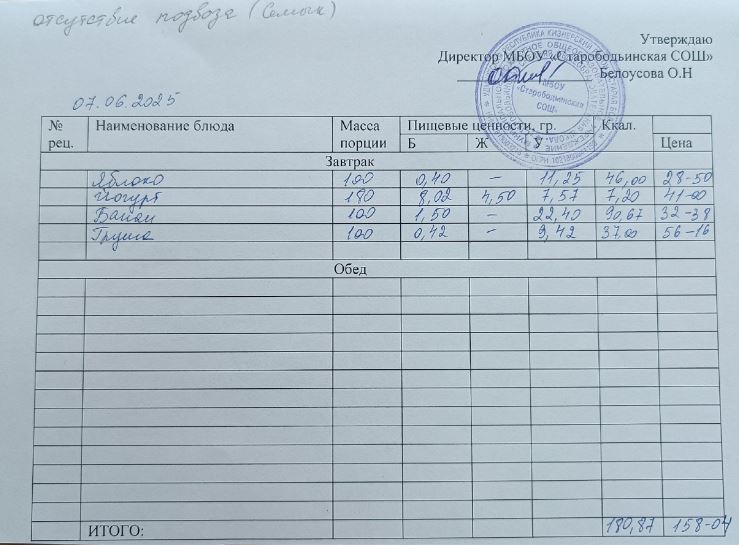 отсутствие подвоза (Семык)
Утверждаю
Директор МБОУ «Старободьинская СОШ»
Белоусова О.Н
07.06.2025
№ рец. Наименование блюда Масса порции Пищевые ценности, гр. Ккал. Цена
Б Ж У
Завтрак
Яблоко 100 0,40 – 11,25 46,00 28-50
Йогурт 180 8,02 4,50 7,57 7,20 41-00
Банан 100 1,50 – 22,40 90,67 32-38
Груша 100 0,42 – 9,42 37,00 56-16
Обед
ИТОГО: 180,87 158-04
МБОУ
«Старободьинская
СОШ»